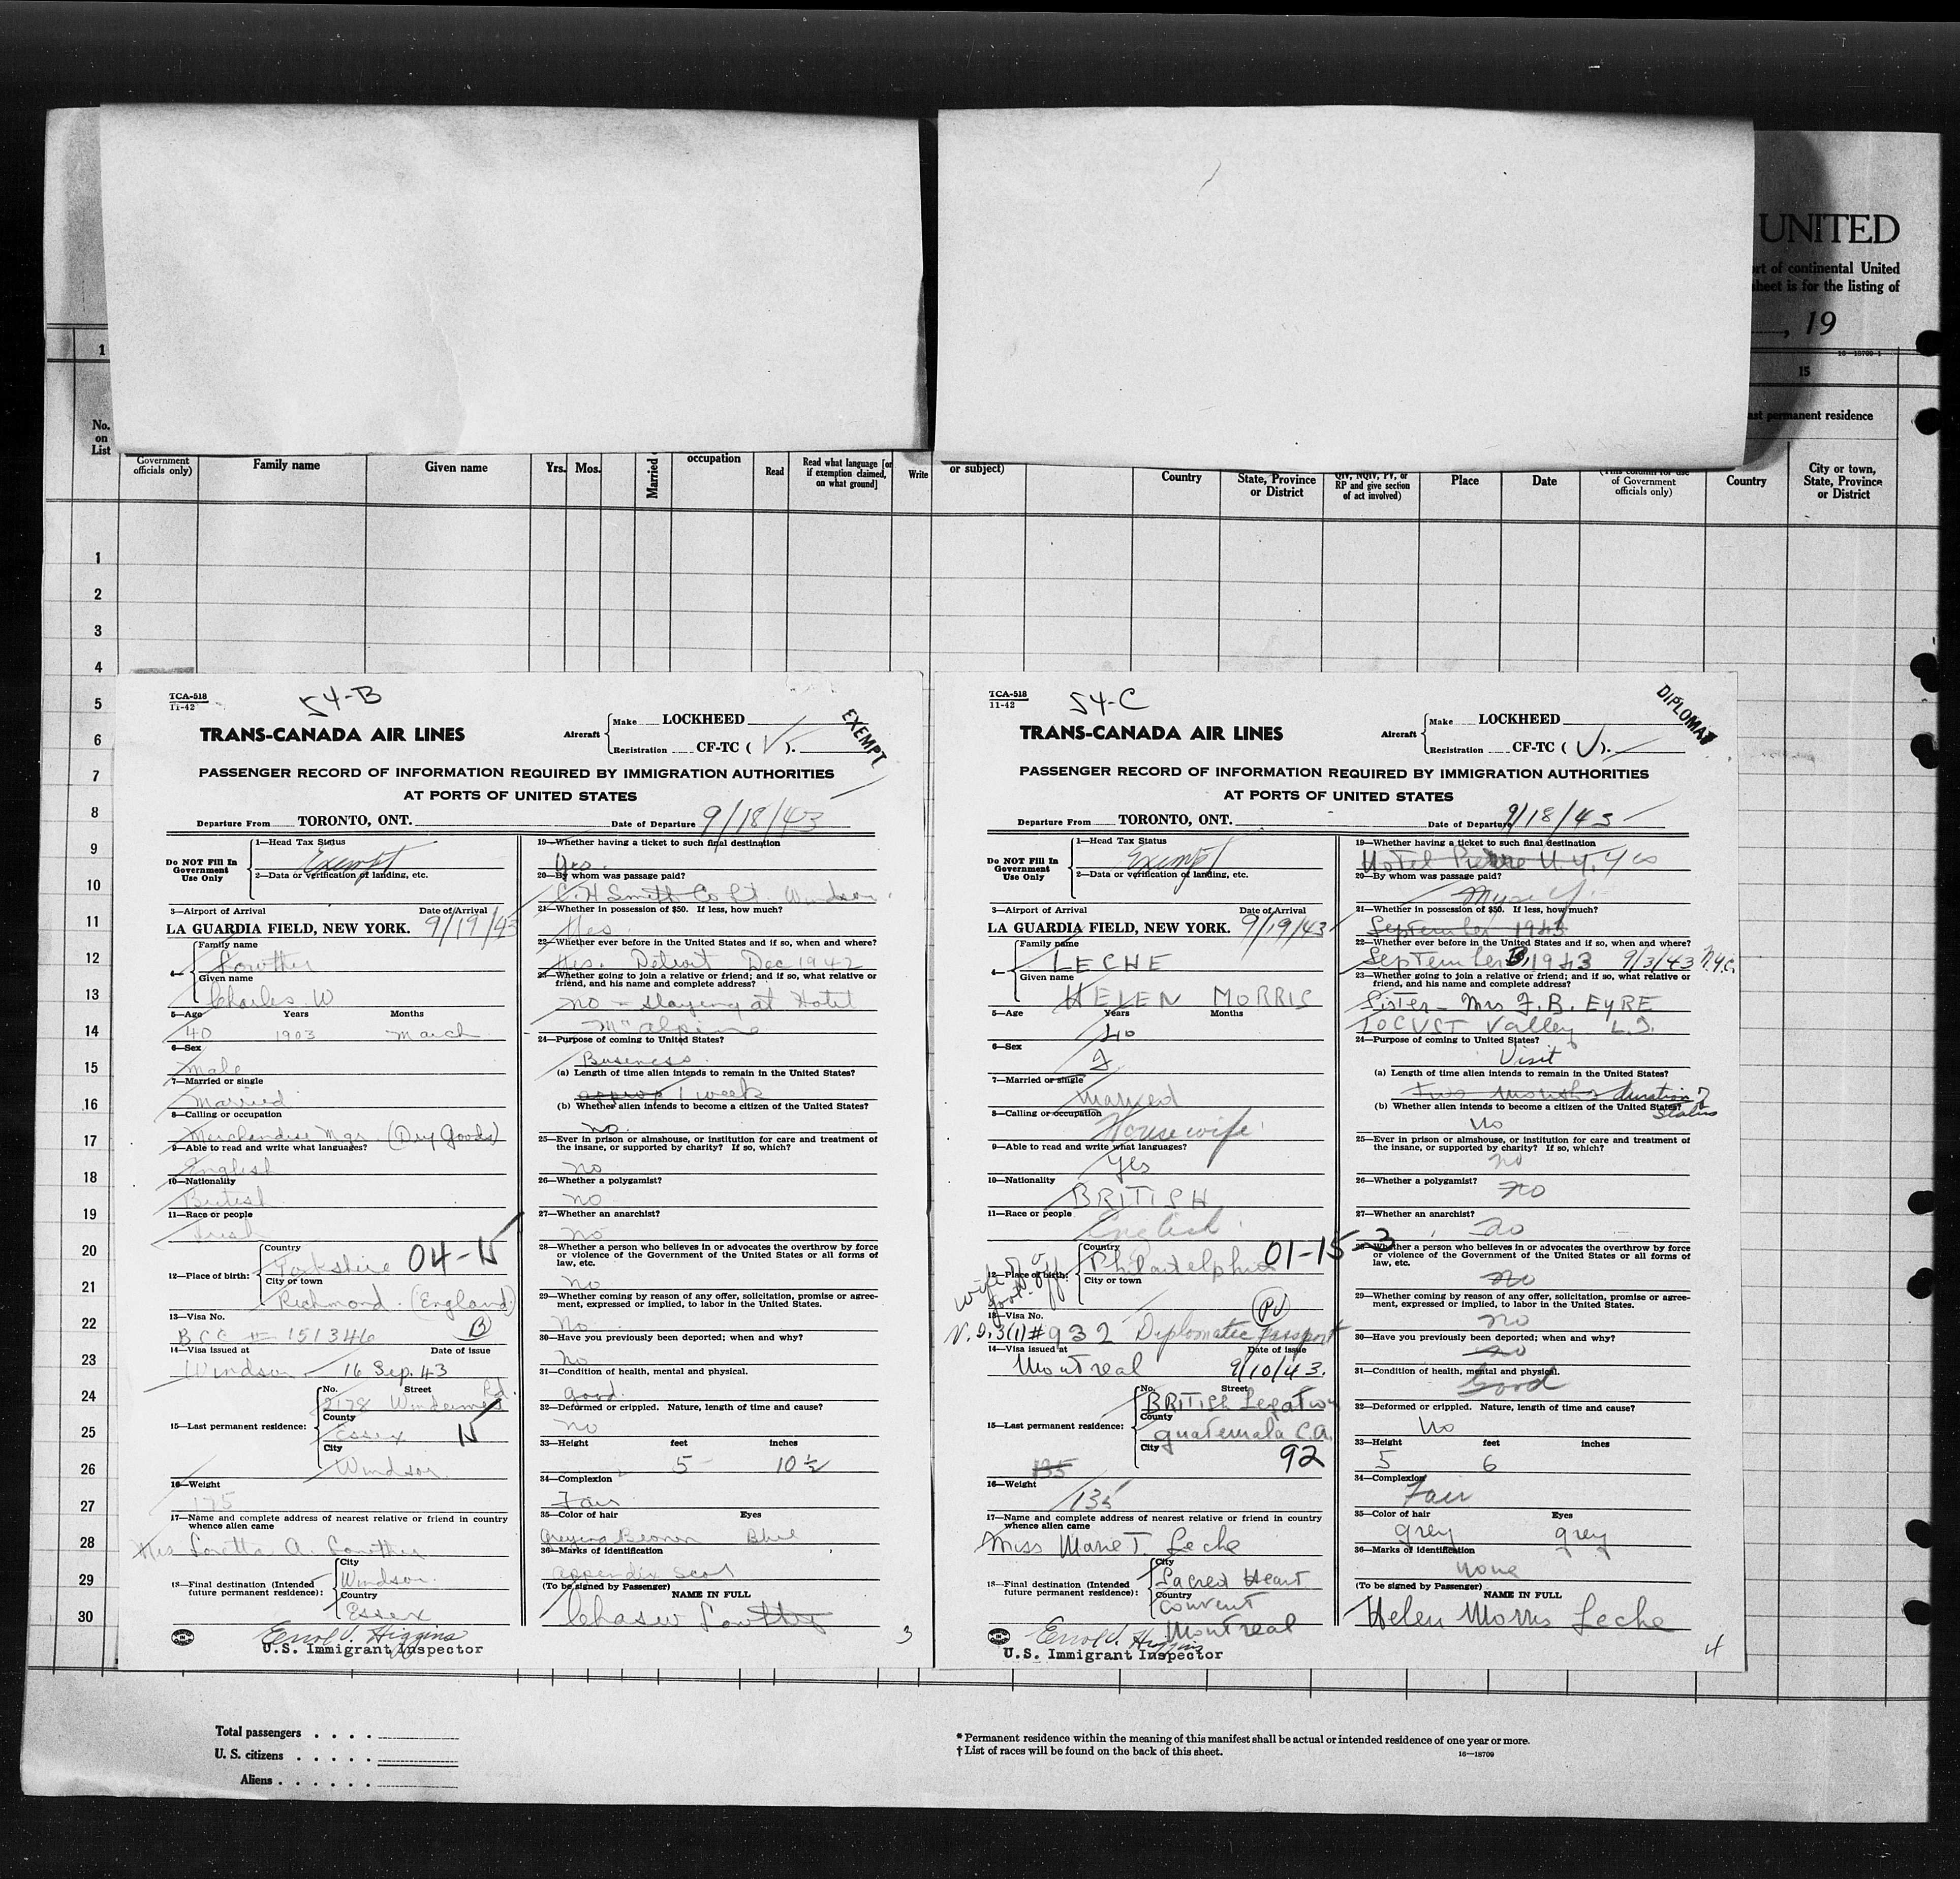 UNITED
rt of continental United
sheet is for the listing of
, 19
16—18709-1
1
15
st permanent residence
No.
on
List
Government
officials only)
Family name
Given name
Yrs.
Mos.
Married
occupation
Read
Read what language [or
if exemption claimed,
on what ground]
Write
or subject)
Country
State, Province
or District
QIV, NQIV, PV, or
RP and give section
of act involved)
Place
Date
(This column for use
of Government
officials only)
Country
City or town,
State, Province
or District
1
2
3
4
5
6
7
8
9
10
11
12
13
14
15
16
17
18
19
20
21
22
23
24
25
26
27
28
29
30
TCA-518
11-42
54-B
EXEMPT
TRANS-CANADA AIR LINES
Aircraft
Make LOCKHEED
Registration CF-TC ( V ).
PASSENGER RECORD OF INFORMATION REQUIRED BY IMMIGRATION AUTHORITIES
AT PORTS OF UNITED STATES
Departure From TORONTO, ONT. Date of Departure 9/18/43
Do NOT Fill In
Government
Use Only
1—Head Tax Status
Exempt
2—Data or verification of landing, etc.
3—Airport of Arrival Date of Arrival
LA GUARDIA FIELD, NEW YORK. 9/19/43
4—
Family name
Lowther
Given name
Charles W
5—Age Years Months
40 1903 March
6—Sex
Male
7—Married or single
Married
8—Calling or occupation
Merchandise Mgr (Dry Goods)
9—Able to read and write what languages?
English
10—Nationality
British
11—Race or people
Irish
12—Place of birth:
Country
Yorkshire 04-15
City or town
Richmond. (England)
13—Visa No.
BCC # 151346 B
14—Visa issued at Date of issue
Windsor 16 Sep. 43
15—Last permanent residence:
No. Street
2178 Windermere Rd.
County
Essex 15
City
Windsor.
16—Weight
175
17—Name and complete address of nearest relative or friend in country
whence alien came
Mrs Loretta A. Lowther
18—Final destination (Intended
future permanent residence):
City
Windsor.
Country
Essex
Errol J. Higgins
U.S. Immigrant Inspector
19—Whether having a ticket to such final destination
Yes.
20—By whom was passage paid?
C. H Smith Co Lt. Windsor.
21—Whether in possession of $50. If less, how much?
Yes
22—Whether ever before in the United States and if so, when and where?
Yes. Detroit Dec 1942
23—Whether going to join a relative or friend; and if so, what relative or
friend, and his name and complete address?
no - staying at Hotel
McAlpine
24—Purpose of coming to United States?
Business.
(a) Length of time alien intends to remain in the United States?
approx 1 week
(b) Whether alien intends to become a citizen of the United States?
no.
25—Ever in prison or almshouse, or institution for care and treatment of
the insane, or supported by charity? If so, which?
no
26—Whether a polygamist?
no
27—Whether an anarchist?
no
28—Whether a person who believes in or advocates the overthrow by force
or violence of the Government of the United States or all forms of
law, etc.
no
29—Whether coming by reason of any offer, solicitation, promise or agree-
ment, expressed or implied, to labor in the United States.
no
30—Have you previously been deported; when and why?
no
31—Condition of health, mental and physical.
good.
32—Deformed or crippled. Nature, length of time and cause?
no
33—Height feet inches
5 10½
34—Complexion
Fair
35—Color of hair Eyes
Greying Brown Blue
36—Marks of identification
appendix scar
(To be signed by Passenger) NAME IN FULL
Chas W Lowther
3
TCA-518
11-42
54-C
DIPLOMAT
TRANS-CANADA AIR LINES
Aircraft
Make LOCKHEED
Registration CF-TC ( V ).
PASSENGER RECORD OF INFORMATION REQUIRED BY IMMIGRATION AUTHORITIES
AT PORTS OF UNITED STATES
Departure From TORONTO, ONT. Date of Departure 9/18/43
Do NOT Fill In
Government
Use Only
1—Head Tax Status
Exempt
2—Data or verification of landing, etc.
3—Airport of Arrival Date of Arrival
LA GUARDIA FIELD, NEW YORK. 9/19/43
4—
Family name
LECHE
Given name
HELEN MORRIS
5—Age Years Months
40
6—Sex
F
7—Married or single
married
8—Calling or occupation
Housewife
9—Able to read and write what languages?
Yes
10—Nationality
BRITISH
11—Race or people
English
wife of
govt. off
12—Place of birth:
Country
Philadelphia 01-15-3
City or town
13—Visa No. PV
V. D. 3(1) #932 Diplomatic Passport
14—Visa issued at Date of issue
Montreal 9/10/43.
15—Last permanent residence:
No. Street
BRITISH Legation
County
guatemala C.A.
City
92
135
16—Weight
135
17—Name and complete address of nearest relative or friend in country
whence alien came
Miss Marie T. Leche
18—Final destination (Intended
future permanent residence):
City
Sacred Heart
Country
convent
Montreal
Errol J. Higgins
U.S. Immigrant Inspector
19—Whether having a ticket to such final destination
Hotel Pierre N.Y. Yes
20—By whom was passage paid?
Myself.
21—Whether in possession of $50. If less, how much?
September 1943
22—Whether ever before in the United States and if so, when and where?
September 3, 1943 9/3/43 N.Y.C.
23—Whether going to join a relative or friend; and if so, what relative or
friend, and his name and complete address?
Sister - Mrs F. B. EYRE
LOCUST Valley L.I.
24—Purpose of coming to United States?
Visit
(a) Length of time alien intends to remain in the United States?
Two months duration of
status
(b) Whether alien intends to become a citizen of the United States?
no
25—Ever in prison or almshouse, or institution for care and treatment of
the insane, or supported by charity? If so, which?
no
26—Whether a polygamist?
no
27—Whether an anarchist?
no
28—Whether a person who believes in or advocates the overthrow by force
or violence of the Government of the United States or all forms of
law, etc.
no
29—Whether coming by reason of any offer, solicitation, promise or agree-
ment, expressed or implied, to labor in the United States.
no
30—Have you previously been deported; when and why?
no
31—Condition of health, mental and physical.
Good
32—Deformed or crippled. Nature, length of time and cause?
no
33—Height feet inches
5 6
34—Complexion
Fair
35—Color of hair Eyes
grey grey
36—Marks of identification
none
(To be signed by Passenger) NAME IN FULL
Helen Morris Leche
4
Total passengers
U. S. citizens
Aliens
* Permanent residence within the meaning of this manifest shall be actual or intended residence of one year or more.
† List of races will be found on the back of this sheet.
16—18709